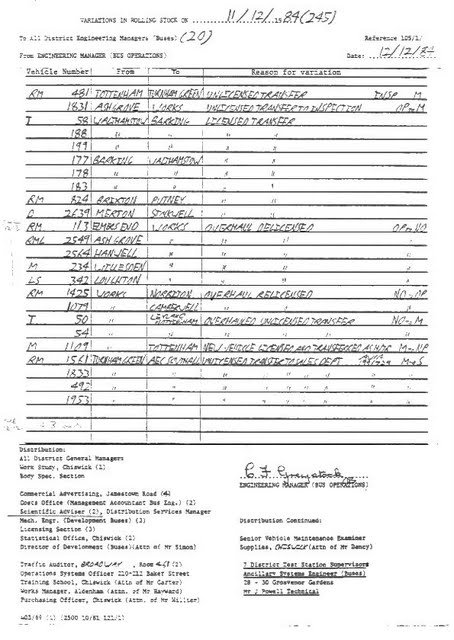 VARIATIONS IN ROLLING STOCK ON 11/12/1984 (245)
To All District Engineering Managers (Buses) (20) Reference 105/1/
From ENGINEERING MANAGER (BUS OPERATIONS) Date: 12/12/84
Vehicle Number From To Reason for variation
RM 481 TOTTENHAM TURNHAM GREEN UNLICENSED TRANSFER INSP M
1831 ASH GROVE WORKS UNLICENSED TRANSFER TO INSPECTION OP-M
T 58 WALTHAMSTOW BARKING LICENSED TRANSFER
188 " " " "
199 " " " "
177 BARKING WALTHAMSTOW " "
178 " " " "
183 " " " "
RM 824 BRIXTON PUTNEY " "
D 2639 MERTON STOCKWELL " "
RM 113 EMBS END WORKS OVERHAUL DELICENSED OP-NO
RML 2549 ASH GROVE " " " "
2564 HANWELL " " " "
M 234 WILLESDEN " " " "
LS 342 LOUGHTON " " " "
RM 1425 WORKS NORBITON OVERHAUL RELICENSED NO-OP
1079 " CAMBERWELL " " "
T 50 " TOTTENHAM OVERHAULED UNLICENSED TRANSFER NO-M
54 " " " " "
M 1109 TOTTENHAM NEW VEHICLE LICENSED AND TRANSFERRED AS NDR M-NP
RM 1561 TURNHAM GREEN AEC SOUTHALL UNLICENSED TRANSFER TO SALES DEPT M-S
1833 " " " " "
492 " " " " "
1953 " " " " "
Distribution:
All District General Managers
Work Study, Chiswick (2)
Body Spec. Section
ENGINEERING MANAGER (BUS OPERATIONS)
Commercial Advertising, Jamestown Road (4)
Costs Office (Management Accountant Bus Eng.) (2)
Scientific Adviser (2), Distribution Services Manager
Mech. Engr. (Development Buses) (3)
Licensing Section (3)
Statistical Office, Chiswick (2)
Director of Development (Buses)(Attn of Mr Simon)
Distribution Continued:
Senior Vehicle Maintenance Examiner
Supplies, CHISWICK (Attn of Mr Dancy)
Traffic Auditor, BROADWAY, Room 468 (2)
Operations Systems Officer 210-212 Baker Street
Training School, Chiswick (Attn of Mr Carter)
Works Manager, Aldenham (Attn. of Mr Hayward)
Purchasing Officer, Chiswick (Attn of Mr Willier)
7 District Test Station Supervisors
Ancillary Systems Engineer (Buses)
28 - 30 Grosvenor Gardens
Mr J Powell Technical
403/89 (1) (2500 10/81 121/1)